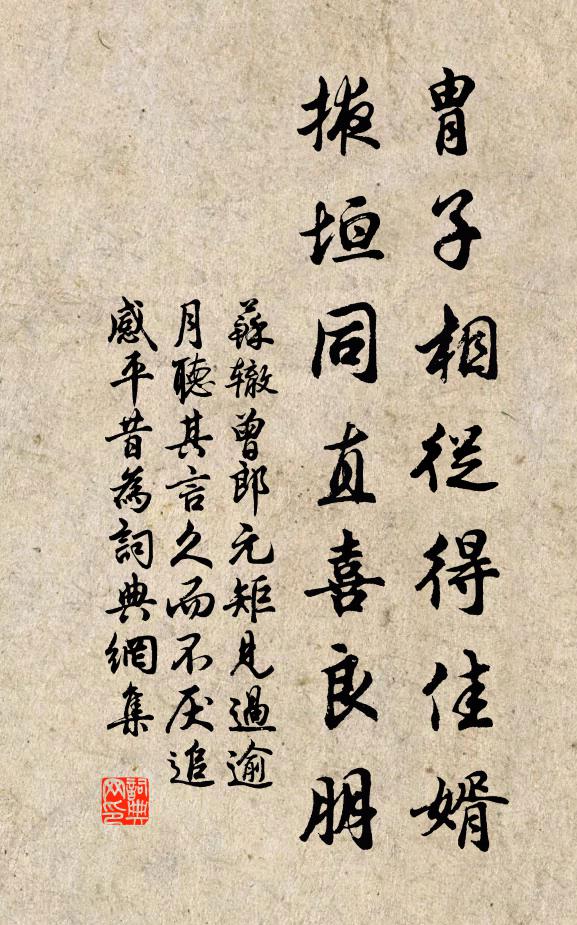 胄子相從得佳婿
掖垣同直喜良朋
蘇辙曾郎元矩見過逾
月聽其言久而不厌追
感平昔為詞典網集
詞典
网印